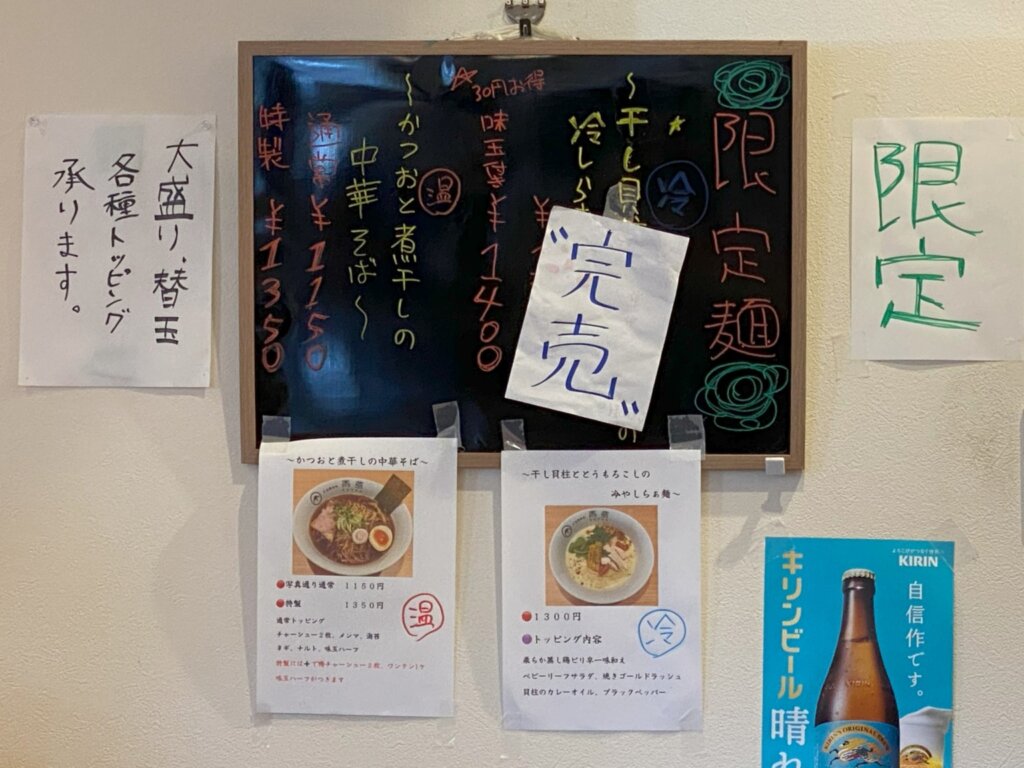 限定麺
冷
〜干し貝
冷しら
￥
"完売"
の
30円お得
味玉
￥1400
温
〜かつおと煮干しの
中華そば〜
通常￥1150
特製￥1350
大盛り、替玉
各種トッピング
承ります。
限定
〜かつおと煮干しの中華そば〜
写真通り通常 1150円
特製 1350円
温
通常トッピング
チャーシュー2枚、メンマ、海苔
ネギ、ナルト、味玉ハーフ
特製には+で鴨チャーシュー2枚、ワンテン1ケ
味玉ハーフがつきます
〜干し貝柱ととうもろこしの
冷やしらぁ麺〜
1300円
トッピング内容
冷
柔らか蒸し鶏ピリ辛一味和え
ベビーリーフサラダ、焼きゴールドラッシュ
貝柱のカレーオイル、ブラックペッパー
よろこびがつなぐ世界へ
KIRIN
キリンビール
晴れ
自信作です。